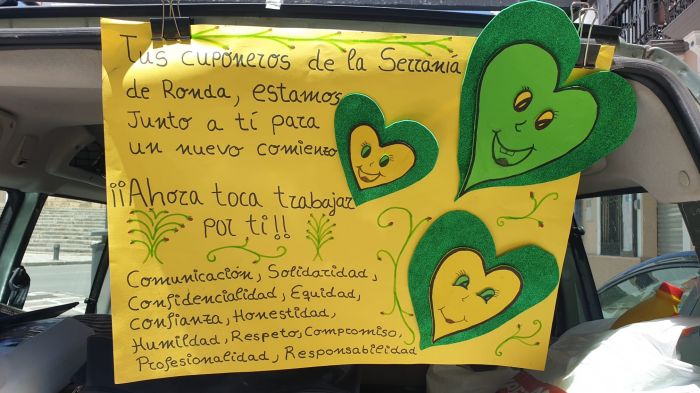 Tus cuponeros de la Serranía
de Ronda, estamos
Junto a tí para
un nuevo comienzo
¡¡Ahora toca trabajar
por ti!!
Comunicación, Solidaridad,
Confidencialidad, Equidad,
Confianza, Honestidad,
Humildad, Respeto, Compromiso,
Profesionalidad, Responsabilidad